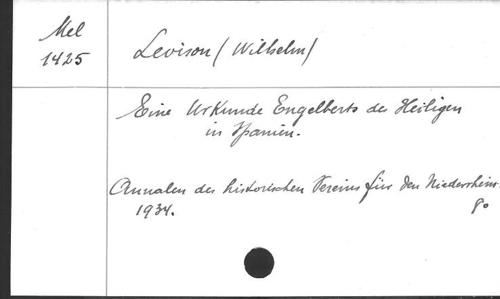 Mel
1425
Levison (Wilhelm)
Eine Urkunde Engelberts des Heiligen
in Spanien.
Annalen des historischen Vereins für den Niederrhein.
1934.
8o